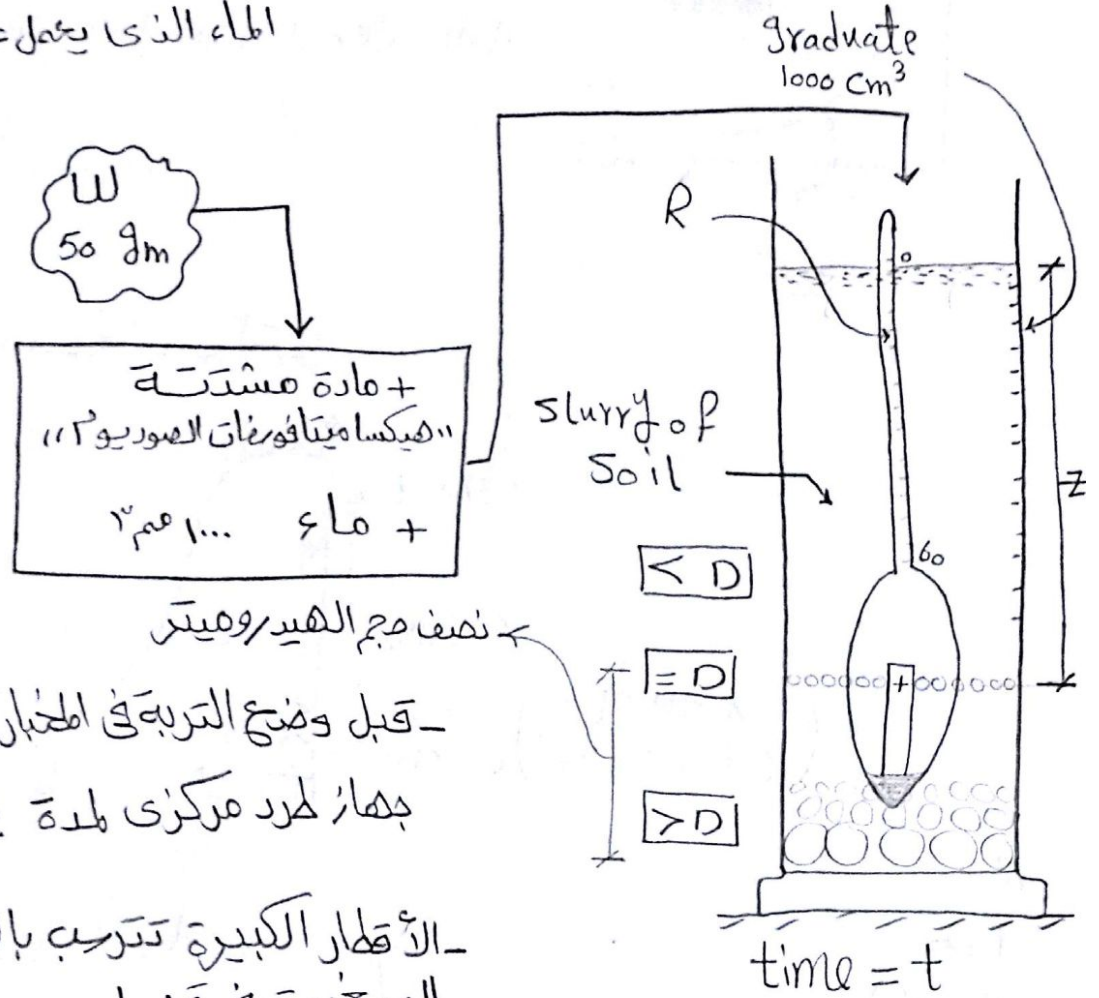 الماء الذى يعمل
graduate
1000 cm³
W
50 gm
R
0
+ مادة مشتتة
"هيكساميتافوسفات الصوديوم"
+ ماء ١٠٠٠ سم٣
slurry of
soil
Z
60
< D
نصف حجم الهيدروميتر
= D
+
- قبل وضع التربة فى المخبار
جهاز طرد مركزى لمدة
> D
- الأقطار الكبيرة تترسب
time = t